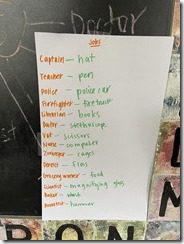 Doctor
Jobs
Captain — hat
Teacher — pen
Police — police car
Firefighter — fire truck
Librarian — books
Doctor — stethoscope
Vet — scissors
Nurse — computer
Zookeeper — cages
Dentist — films
Grocery worker — food
Scientist — magnifying glass
Baker — whisk
— hammer